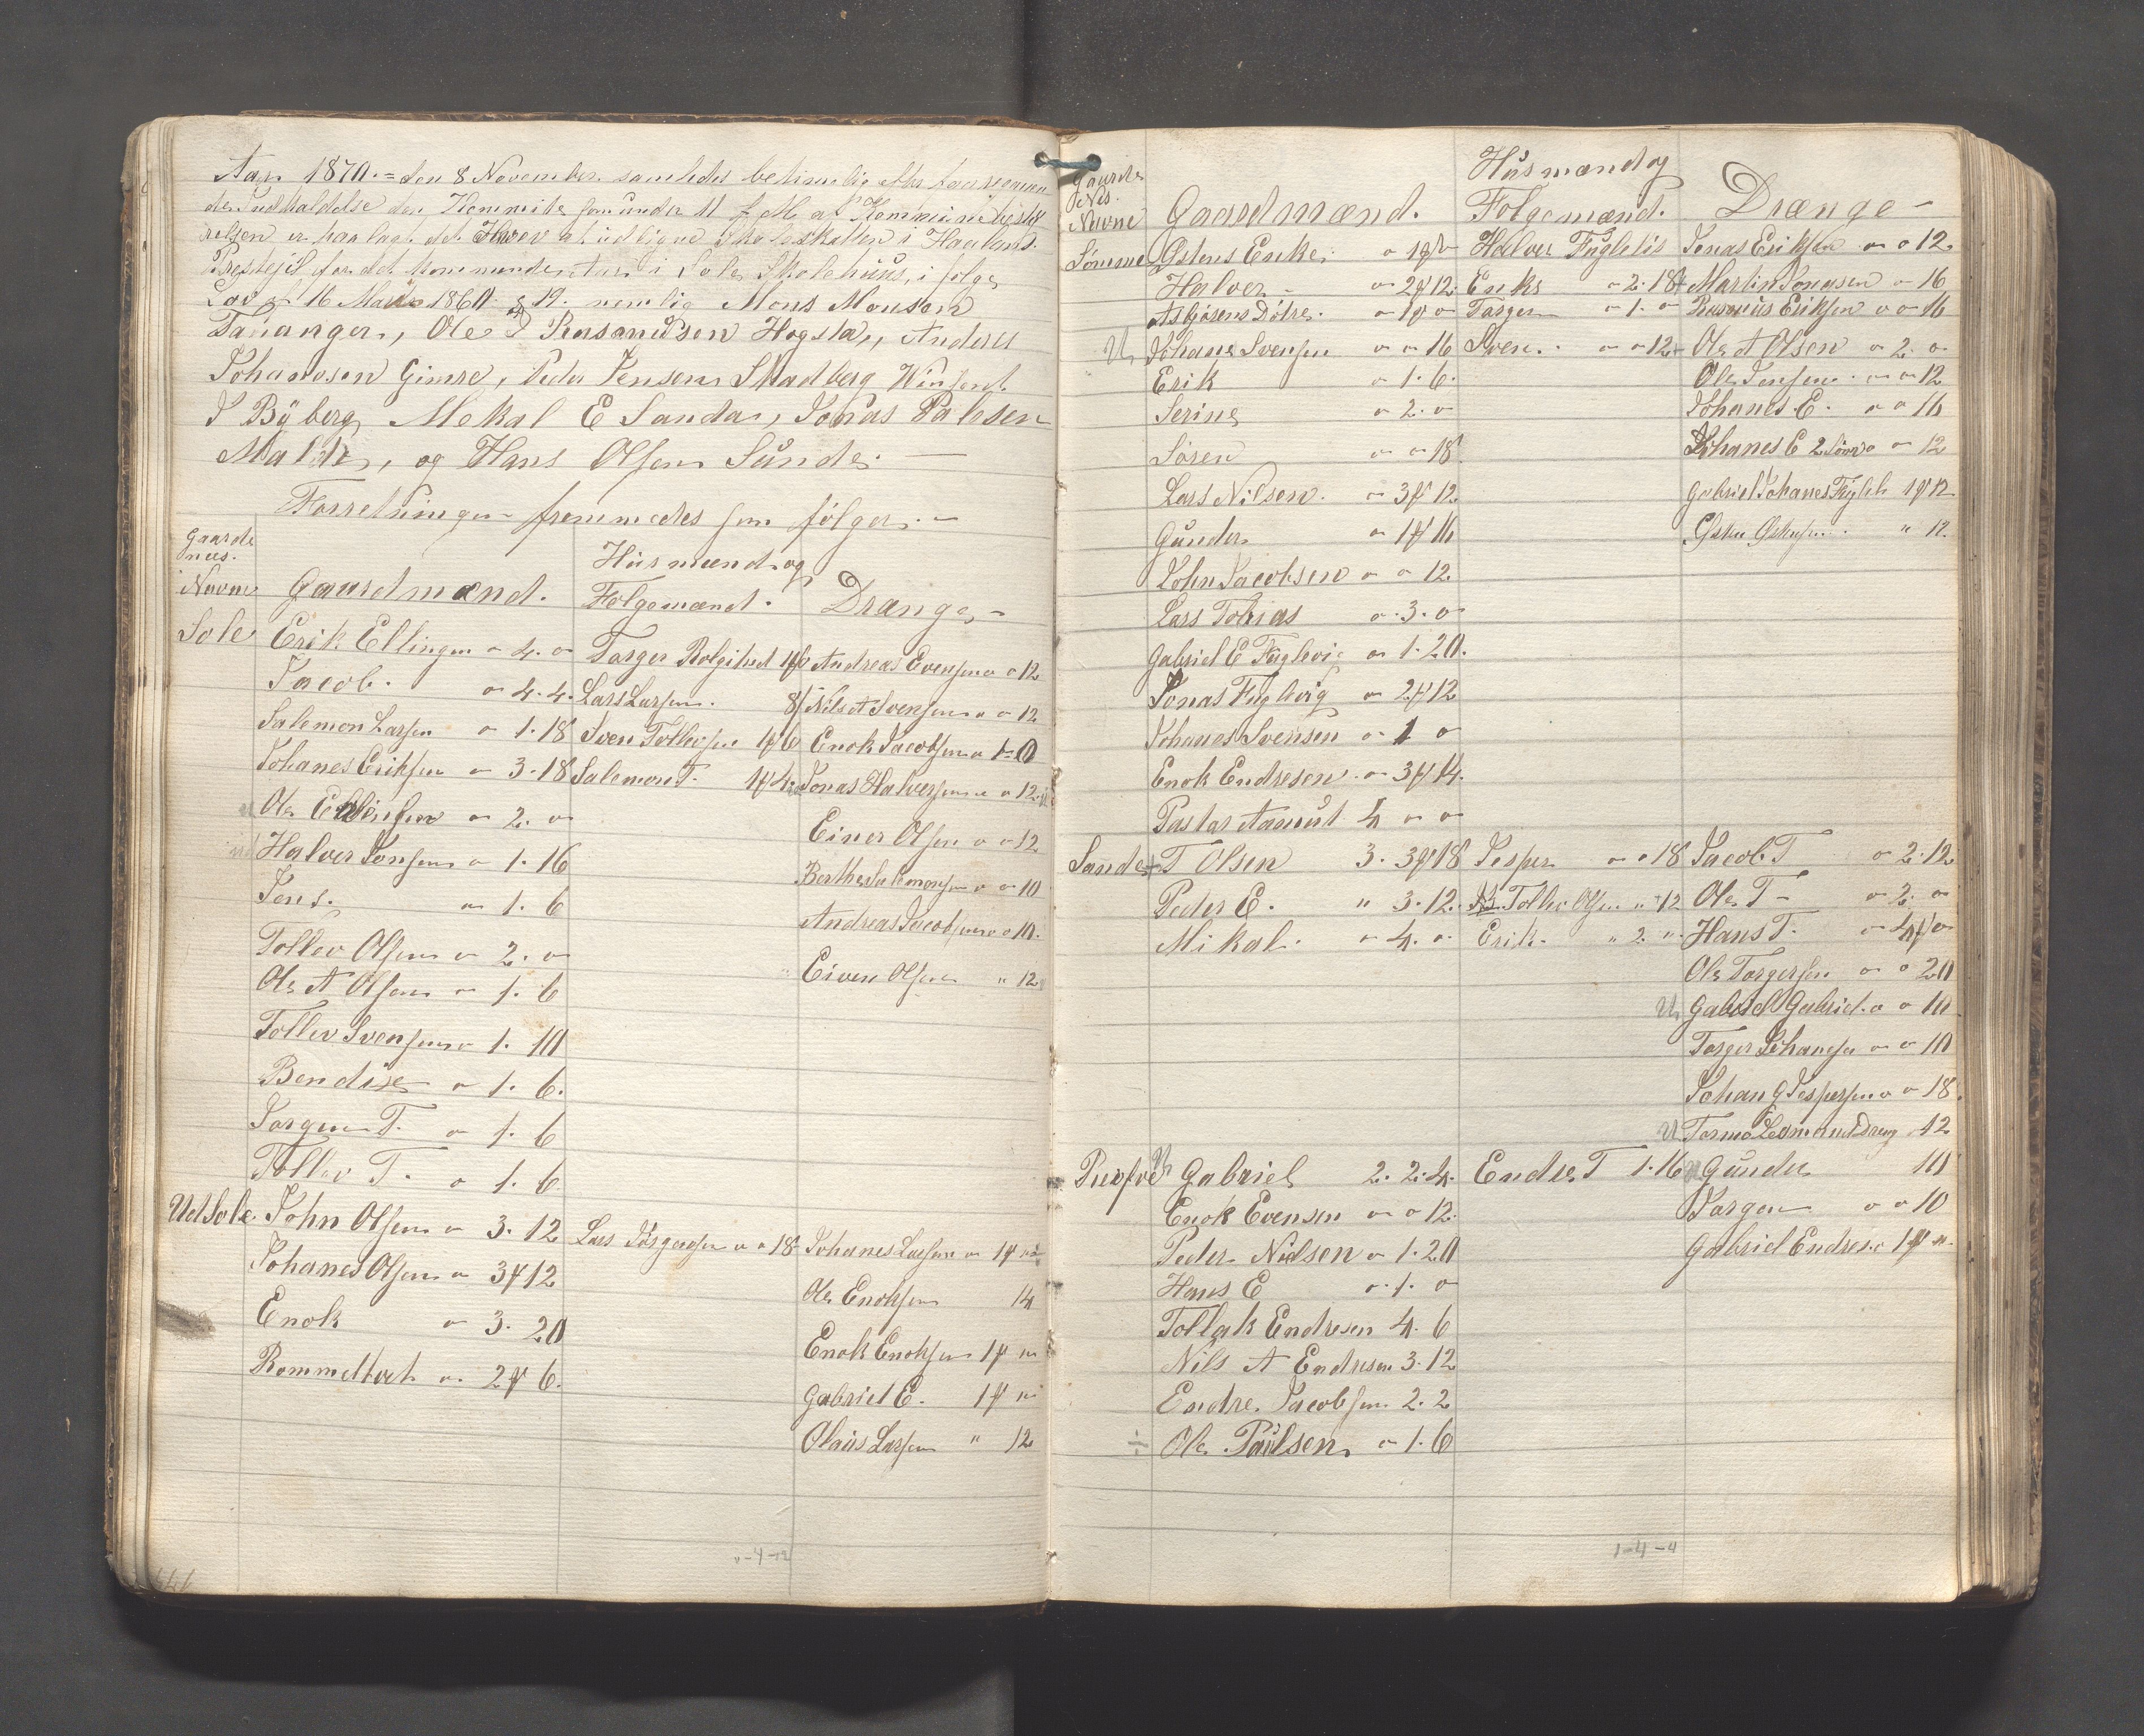 Aar 1870 = den 8 November samledes betimelig efter
Indkaldelse den Kommite som under 11 f. M. af Kommunebesty
relsen er paalagt det Hverv at udligne Skoleskatten i Haalands
Prestejil for det kommende Aar i Sole Skolehüus, i følge
Lov af 16 Mai 1860 § 12. nemlig Mons Monsen
Tananger, Ole Hogsta, Anders
Johanson Gimre, Peder Jensen Stadberg Winsent
J Byberg Mekal E Sande, Jonas Palesen
Malde, og Hans Olsen Sünde. —
Forretningen fremmedes som følger. —
Gaarde
nes.
Navne Gaardmænd. Hüsmænd og
Følgemænd. Drænge —
Sole Erik Ellingsen " 4. " Torger 1 6 Andreas Evensen " " 12
Jacob. " 4. 4. Lars Larsen. 8 Nils A Svensen " " 12
Salemon Larsen " 1. 18 Sven Tollevsen 1 6 Enok Jacobsen " 1 0
Johanes Eriksen " 3. 18 Salemon T. 1 4 Jonas Halversen " " 12
Ole " 2. " Einer Olsen " " 12
Halver Jonsen " 1. 16 Berthe Salemonsen " " 10
Jens. " 1. 6 Andreas Jacobsen " " 10.
Tollev Olsen " 2. " Eiven Olsen " 12
Ole A Olsen " 1. 6
Tollev Svensen " 1. 10
Bendixe " 1. 6.
Torger T. " 1. 6
Tollev T. " 1. 6
Ud Sole John Olsen " 3. 12 Lars Jörgensen " " 18 Johanes Larsen " 1 "
Johanes Olsen " 3 12 Ole Enoksen 14
Enok " 3. 20 Enok Enoksen 1 "
Rommetvet " 2 6. Gabriel E. 1 "
Olaüs Larsen " 12
" - 4 - 12
Gaarde
Nes.
Navne Gaardmænd. Hüsmænd og
Følgemænd. Drænge —
Sömme Östens Enke. " 1 " Halver Füglevig Jonas Eriksen " " 12.
Halver — " 2 12. Enke " 2. 18 Martin Jonasen " 16
Asbjörens Dötre. " 1 " Torger " 1. " Rasmüs Eriksen " " 16
U Johanes Svensen " " 16 Sven. " " 12 Ole A Olsen " 2. "
Erik " 1. 6. Ole Jensen " " 12
Serine " 2. " Johanes E. " " 16
Sören " " 18. Johanes E 2 " 12
Lars Nilsen. " 3 12 Gabriel Johanes Füglev 1 12
Gunder " 1 16 Östen Östensen. " 12.
John Jacobsen " " 12.
Lars Tobias " 3. "
Gabriel E Füglevig " 1. 20.
Jonas Füglevig " 2 12
Johanes Svensen " 1 "
Enok Endresen " 3 14.
Pastor Aamüt 4 " "
Sande T Olsen 3. 3 18 Jesper " " 18 Jacob T " 2. 12
Peder E. " 3. 12. Tollev Olsen " 12 Ole T — " 2. "
Mikal. " 4. " Erik. " 2. " Hans T. " 4 "
Ole Torgersen " " 20
U Gabriel Gabriel. " " 10
Torger Johansen " " 10
Johan G Jespersen " " 18.
U 12
Gabriel 2. 2. 4. Endre T 1. 16 Gunder 10
Enok Evensen " " 12. Torger " " 10
Peder Nielsen " 1. 20 Gabriel Endres. 1 ".
Hans E " 1. "
Tollak Endresen 4. 6
Nils A Endresen 3. 12
Endre Jacobsen 2. 2
÷ Ole Paülsen " 1. 6
1 - 4 - 4